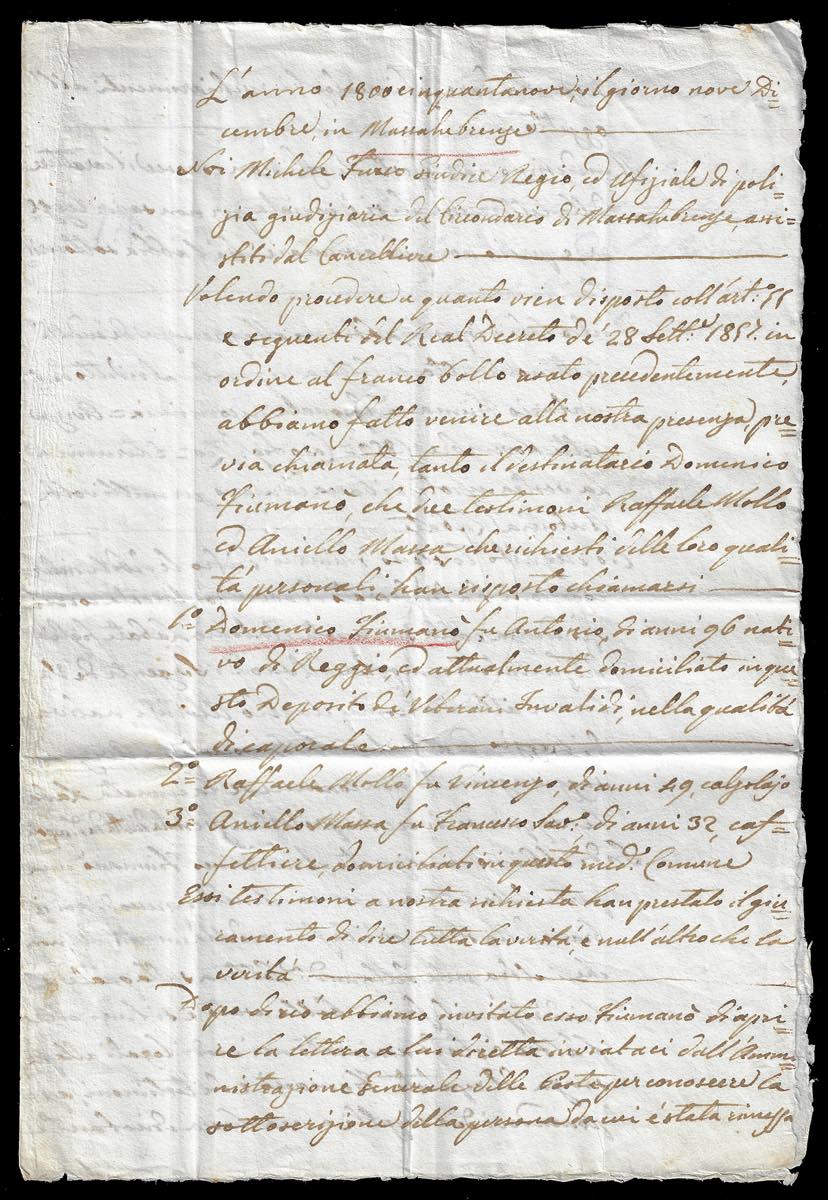 L'anno 1800cinquantanove, il giorno nove Di=
cembre, in Massalubrense
Noi Michele Fusco Giudice Regio, ed Ufiziale di poli=
zia giudiziaria del Circondario di Massalubrense, assi=
stiti dal Cancelliere
Volendo procedere a quanto vien disposto coll'art:º 11
e seguenti del Real Decreto de' 28 Sett.e 1857. in
ordine al franco bollo usato precedentemente,
abbiamo fatto venire alla nostra presenza, pre=
via chiamata, tanto il destinatario Domenico
Fiumanò, che due testimoni Raffaele Mollo
ed Aniello Massa che richiesti delle loro quali=
tà personali, han risposto chiamarsi
1º Domenico Fiumanò fu Antonio, di anni 96 nati=
vo di Reggio, ed attualmente domiciliato in que=
sto Deposito de' Veterani Invalidi, nella qualità
di caporale
2º Raffaele Mollo fu Vincenzo, di anni 49, calzolajo
3º Aniello Massa fu Francesco Sav.º, di anni 32, caf=
fettiere, domiciliati in questo med.º Comune
Essi testimoni a nostra richiesta han prestato il giu=
ramento di dire tutta la verità, e null'altro che la
verità
Dopo di ciò abbiamo invitato esso Fiumanò di apri=
re la lettera a lui diretta inviataci dall'Ammi=
nistrazione Generale delle Poste per conoscere la
sottoscrizione della persona da cui è stata rimessa